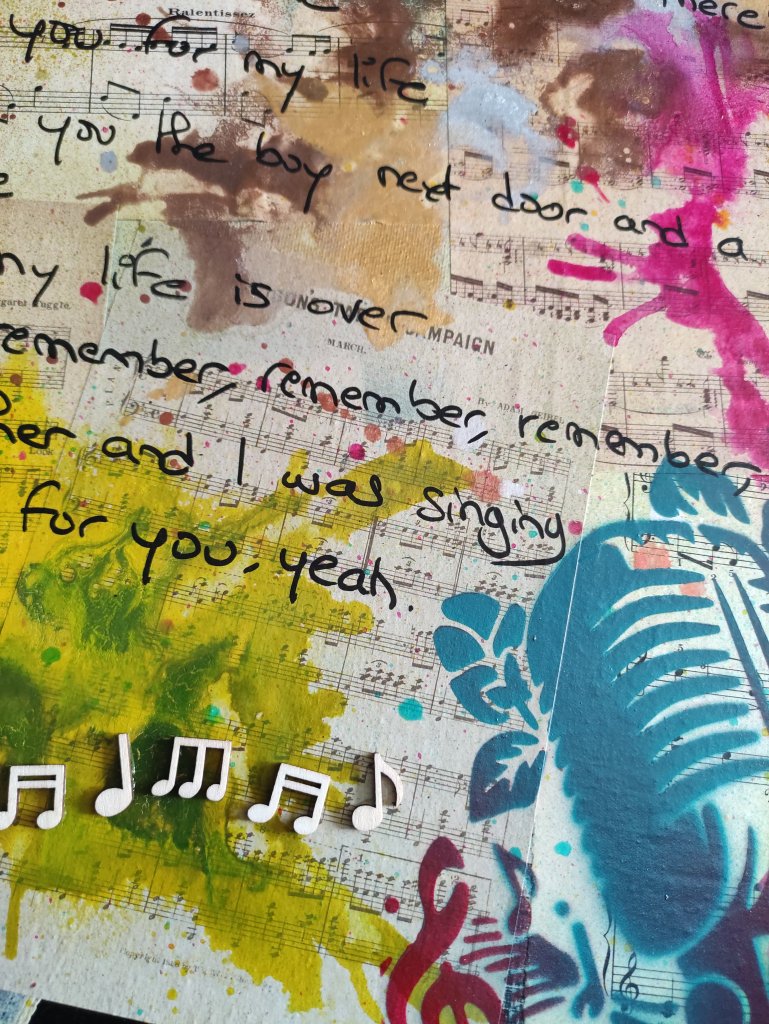 there
Ralentissez
you for my life
you the boy next door and a
my life is over
CAMPAIGN
MARCH.
remember, remember, remember,
her and I was singing
for you, yeah.